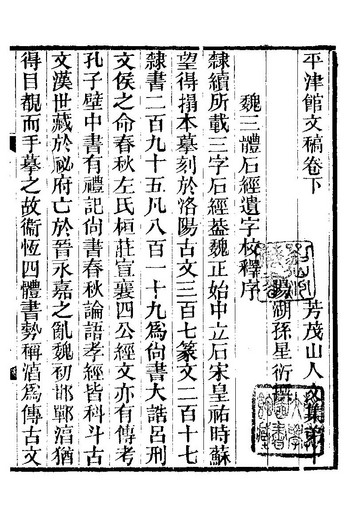 平津館文稿卷下 芳茂山人文集第
陽湖孫星衍
魏三體石經遺字校釋序
隸續所載三字石經葢魏正始中立石宋皇祐時蘇
望得搨本摹刻於洛陽古文三百七篆文二百十七
隸書二百九十五凡八百一十九爲尙書大誥呂刑
文侯之命春秋左氏桓莊宣襄四公經文亦有傳考
孔子壁中書有禮記尙書春秋論語孝經皆科斗古
文漢世藏於祕府亡於晉永嘉之亂魏初邯鄲淳猶
得目覩而手摹之故衞恆四體書勢稱淳爲傳古文